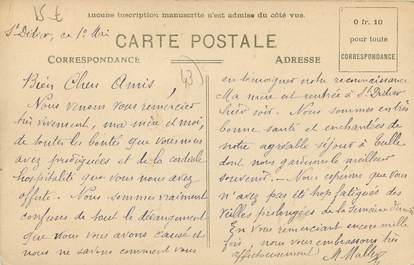 15 €
Aucune inscription manuscrite n'est admise du côté vue.
St Didier, ce 1er Mai
CARTE POSTALE
0 fr. 10
pour toute
CORRESPONDANCE
CORRESPONDANCE
ADRESSE
43
Bien Chers Amis,
Nous venons vous remercier
très vivement, ma mère et moi,
de toutes les bontés que vous nous
avez prodiguées et de la cordiale
hospitalité que vous nous avez
offerte. Nous sommes vraiment
confuses de tout le dérangement
que nous vous avons causé et
nous ne savons comment vous
en témoigner notre reconnaissance
Ma mère est rentrée à St Didier
hier soir. Nous sommes entrées
bonne santé et enchantées de
notre agréable séjour à
dont nous garderons le meilleur
souvenir. Nous espérons que vous
n'avez pas été trop fatiguées des
veilles prolongées de la semaine
En vous remerciant encore mille
fois, nous vous embrassons très
affectueusement